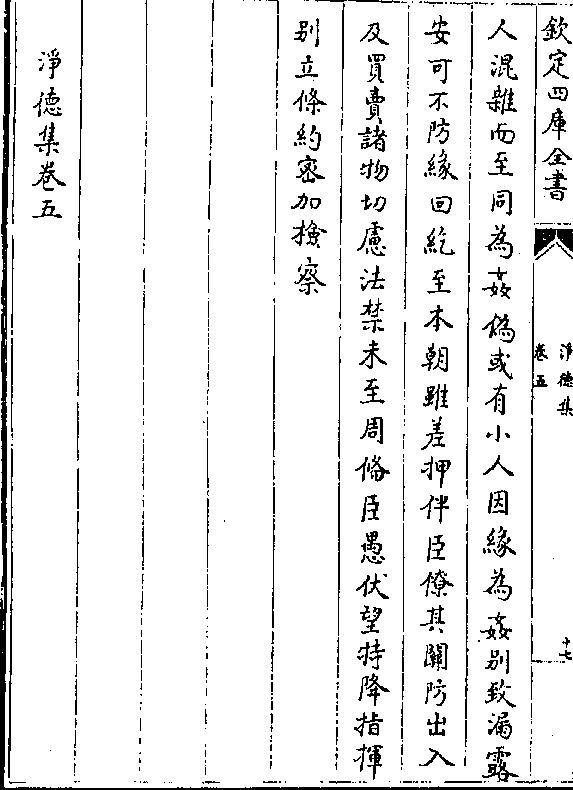 欽定四庫全書
淨德集
卷五
十七
人混雜而至同為姦偽或有小人因緣為姦别致漏露
安可不防緣回紇至本朝雖差押伴臣僚其關防出入
及買賣諸物切慮法禁未至周備臣愚伏望特降指揮
别立條約密加檢察
淨德集卷五